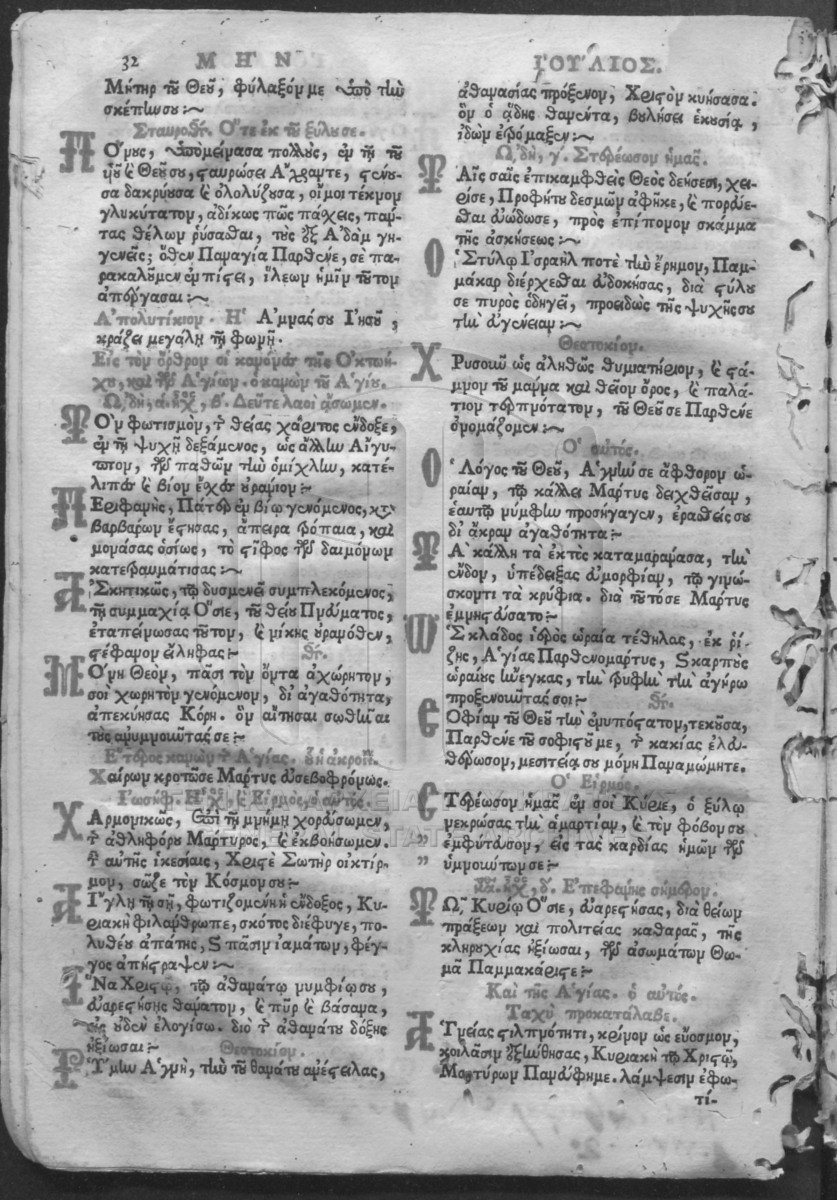 32 ΜΗΝ ΙΟΥΛΙΟΣ.
Μήτηρ τοῦ Θεοῦ, φύλαξόν με ὑπὸ τὴν
σκέπην σου :~
Σταυροθ. Ὅτε ἐκ τοῦ ξύλου σε.
Πόνους, ὑπομείνασα πολλοὺς, ἐν τῇ τοῦ
ὑοῦ καὶ Θεοῦ σου, σταυρώσει Ἄχραντε, στένου-
σα δακρύουσα καὶ ὀλολύζουσα, οἴμοι τέκνον
γλυκύτατον, ἀδίκως πῶς πάσχεις, πάν-
τας θέλων ῥύσασθαι, τοὺς ἐξ Ἀδὰμ γη-
γενεῖς; ὅθεν Παναγία Παρθένε, σὲ πα-
ρακαλοῦμεν ἐν πίστει, ἵλεων ἡμῖν τοῦτον
ἀπέργασαι :~
Ἀπολυτίκιον. Ἡ Ἀμνάς σου Ἰησοῦ,
κράζει μεγάλῃ τῇ φωνῇ.
Εἰς τὸν ὄρθρον οἱ κανόνες τῆς Ὀκτωή-
χου, καὶ τῶν Ἁγίων. ὁ κανὼν τοῦ Ἁγίου.
ᾨδὴ, ά. ἦχος, β. Δεῦτε λαοὶ ᾄσωμεν.
Τὸν φωτισμὸν, τῆς θείας χάριτος ἔνδοξε,
ἐν τῇ ψυχῇ δεξάμενος, ὡς ἄλλην Αἴγυ-
πτον, τῶν παθῶν τὴν ὁμίχλην, κατέ-
λιπες καὶ βίον ἔσχες οὐράνιον :~
Περιφανὴς, Πάτερ ἐν βίῳ γενόμενος, κατὰ
βαρβάρων ἔστησας, ἄπειρα τρόπαια, καὶ
μονάσας ὁσίως, τὸ στίφος τῶν δαιμόνων
κατετραυμάτισας :~
Ἀσκητικῶς, τῷ δυσμενεῖ συμπλεκόμενος,
τῇ συμμαχίᾳ Ὅσιε, τοῦ θείου Πνεύματος,
ἐταπείνωσας τοῦτον, καὶ νίκης οὐρανόθεν,
στέφανον εἴληφας :~ Θ.
Μόνη Θεὸν, πᾶσι τὸν ὄντα ἀχώρητον,
σοὶ χωρητὸν γενόμενον, δι' ἀγαθότητα,
ἀπεκύησας Κόρη. ὃν αἴτησαι σωθῆναι
τοὺς ἀνυμνοῦντάς σε :~
Ἕτερος κανὼν τῆς Ἁγίας. οὗ ἡ ἀκροστ.
Χαίρων κροτῶ σε Μάρτυς εὐσεβοφρόνως.
Ἰωσήφ. Ἦχος, καὶ Εἱρμὸς, ὁ αὐτὸς.
Χαρμονικῶς, ἐπὶ τῇ μνήμῃ χορεύσωμεν,
τῆς ἀθληφόρου Μάρτυρος, καὶ ἐκβοήσωμεν.
τῆς αὐτῆς ἱκεσίαις, Χριστὲ Σωτὴρ οἰκτίρ-
μον, σῶζε τὸν Κόσμον σου :~
Αἴγλῃ τῇ σῇ, φωτιζομένη ἡ ἔνδοξος, Κυ-
ριακὴ φιλάνθρωπε, σκότος διέφυγε, πο-
λυθέου ἀπάτης, καὶ πᾶσιν ἰαμάτων, φέγ-
γος ἀπήστραψεν :~
Ἵνα Χριστῷ, τῷ ἀθανάτῳ νυμφίῳ σου,
εὐαρεστήσῃς θάνατον, καὶ πῦρ καὶ βάσανα,
εἰς οὐδὲν ἐλογίσω. διὸ τῆς ἀθανάτου δόξης
ἠξίωσαι :~ Θεοτοκίον.
Ῥύμην Ἁγνὴ, τὴν τοῦ θανάτου ἀνέστειλας,
ἀθανασίας πρόξενον, Χριστὸν κυήσασα.
ὃν ὁ ᾅδης θανέντα, βουλήσει ἑκουσίᾳ,
ἰδὼν ἐτρόμαξεν :~
ᾨδὴ, γ. Στερέωσον ἡμᾶς.
Ταῖς σαῖς ἐπικαμφθεὶς Θεὸς δεήσεσι, χει-
ρίσε, Προφήτου δεσμῶν ἀφῆκε, καὶ πορεύε-
σθαι εὐώδωσε, πρὸς ἐπίπονον σκάμμα
τῆς ἀσκήσεως :~
Ὁ Στύλῳ Ἰσραὴλ ποτὲ τὴν ἔρημον, Παμ-
μάκαρ διέρχεσθαι εὐδοκήσας, διὰ στύλου
σε πυρὸς ὁδηγεῖ, προειδὼς τῆς ψυχῆς σου
τὴν εὐγένειαν :~
Θεοτοκίον.
Χρυσοῦν ὡς ἀληθῶς θυμιατήριον, καὶ στά-
μνον τοῦ μάννα καὶ θεῖον ὄρος, καὶ παλά-
τιον τερπνότατον, τοῦ Θεοῦ σε Παρθένε
ὀνομάζομεν :~
Ὁ αὐτός.
Ὁ Λόγος τοῦ Θεοῦ, Ἁγνήν σε ἄφθορον ὡ-
ραίαν, τῷ κάλλει Μάρτυς δειχθεῖσαν,
ἑαυτῷ νύμφην προσήγαγεν, ἐρασθείς σου
δι' ἄκραν ἀγαθότητα :~
Τὰ κάλλη τὰ ἐκτὸς καταμαράνασα, τὴν
ἔνδον, ὑπέδειξας εὐμορφίαν, τῷ γινώ-
σκοντι τὰ κρύφια. διὰ τοῦτό σε Μάρτυς
ἐμνηστεύσατο :~
Ὡς κλάδος ἱερὸς ὡραία τέθηλας, ἐκ ῥί-
ζης, Ἁγίας Παρθενομάρτυς, καὶ καρποὺς
ὡραίους ἤνεγκας, τὴν τρυφὴν τὴν ἀγήρω
προξενοῦντάς σοι :~ Θ.
Σοφίαν τοῦ Θεοῦ τὴν ἐνυπόστατον, τεκοῦσα,
Παρθένε τοῦ σοφιστοῦ με, τῆς κακίας ἐλευ-
θέρωσον, μεσιτείᾳ σου μόνη Παναμώμητε.
Ὁ Εἱρμός.
Στερέωσον ἡμᾶς ἐν σοὶ Κύριε, ὁ ξύλῳ
„ νεκρώσας τὴν ἁμαρτίαν, καὶ τὸν φόβον σου
„ ἐμφύτευσον, εἰς τὰς καρδίας ἡμῶν τῶν
ὑμνούντων σε :~
Κα. ἦχος, δ. Ἐπεφάνης σήμερον.
Τῷ Κυρίῳ Ὅσιε, εὐαρεστήσας, διὰ θείων
πράξεων καὶ πολιτείας καθαρᾶς, τῆς
κληρουχίας ἠξίωσαι, τῶν ἀσωμάτων Θω-
μᾶ Παμμακάριστε :~
Καὶ τῆς Ἁγίας. ὁ αὐτός.
Ταχὺ προκατάλαβε.
Ἁγνείας στιλπνότητι, κρίνον ὡς εὔοσμον,
κοιλάσιν ἐξήνθησας, Κυριακὴ τῷ Χριστῷ,
Μαρτύρων Πανεύφημε. λάμψεσιν ἐφω-
τί-